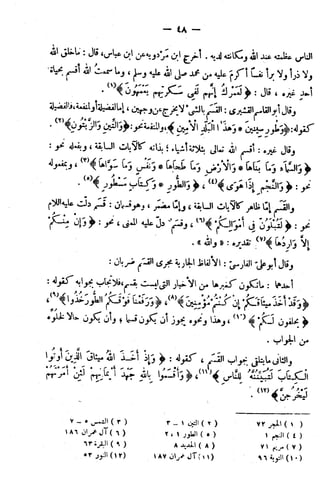 — ٤٨ —
الناس عظمته عند الله ومكانته لديه. أخرج ابن مردويه عن ابن عباس، قال: ما خلق الله
ولا ذرأ ولا برأ نفسا أكرم عليه من محمد صلى الله عليه وسلم، وما سمعت الله أقسم بحياة
أحد غيره، قال: ﴿لَعَمْرُكَ إِنَّهُمْ لَفِي سَكْرَتِهِمْ يَعْمَهُونَ﴾(١).
وقال أبو القاسم القشيرى: القسم بالشىء لا يخرج عن وجهين، إما لفضيلة أو لمنفعة، فالفضيلة
كقوله: ﴿وَطُورِ سِينِينَ * وَهَذَا الْبَلَدِ الْأَمِينِ﴾، والمنفعة نحو: ﴿وَالتِّينِ وَالزَّيْتُونِ﴾(٢).
وقال غيره: أقسم الله تعالى بثلاثة أشياء: بذاته كالآيات السابقة، وبفعله نحو:
﴿وَالسَّمَاءِ وَمَا بَنَاهَا * وَالْأَرْضِ وَمَا طَحَاهَا * وَنَفْسٍ وَمَا سَوَّاهَا﴾(٣)، وبمفعوله
نحو: ﴿وَالنَّجْمِ إِذَا هَوَى﴾(٤)، ﴿وَالطُّورِ * وَكِتَابٍ مَسْطُورٍ﴾(٥).
والقسم إمّا ظاهر كالآيات السابقة، وإمّا مضمر، وهو قسمان: قسم دلت عليه اللام
نحو: ﴿لَتُبْلَوُنَّ فِي أَمْوَالِكُمْ﴾(٦)، وقسم دلّ عليه المعنى، نحو: ﴿وَإِنْ مِنْكُمْ
إِلَّا وَارِدُهَا﴾(٧) تقديره: «والله».
وقال أبو علىّ الفارسىّ: الألفاظ الجارية مجرى القسم ضربان:
أحدهما: ما تكون كغيرها من الأخبار التى ليست بقسم، فلا تجاب بجوابه كقوله:
﴿وَقَدْ أَخَذَ مِيثَاقَكُمْ إِنْ كُنْتُمْ مُؤْمِنِينَ﴾(٨)، ﴿وَرَفَعْنَا فَوْقَكُمُ الطُّورَ خُذُوا﴾(٩)،
﴿يَحْلِفُونَ لَكُمْ﴾(١٠)، وهذا ونحوه يجوز أن يكون قسما، وأن يكون حالا لخلوّه
من الجواب.
والثانى ما يتلقى بجواب القسم، كقوله: ﴿وَإِذْ أَخَذَ اللهُ مِيثَاقَ الَّذِينَ أُوتُوا
الْكِتَابَ لَتُبَيِّنُنَّهُ لِلنَّاسِ﴾(١١)، ﴿وَأَقْسَمُوا بِاللهِ جَهْدَ أَيْمَانِهِمْ لَئِنْ أَمَرْتَهُمْ
لَيَخْرُجُنَّ﴾(١٢).
(١) الحجر ٧٢ (٢) التين ١ - ٣ (٣) الشمس ٥ - ٧
(٤) النجم ١ (٥) الطور ١، ٢ (٦) آل عمران ١٨٦
(٧) مريم ٧١ (٨) الحديد ٨ (٩) البقرة ٦٣
(١٠) التوبة ٩٦ (١١) آل عمران ١٨٧ (١٢) النور ٥٣